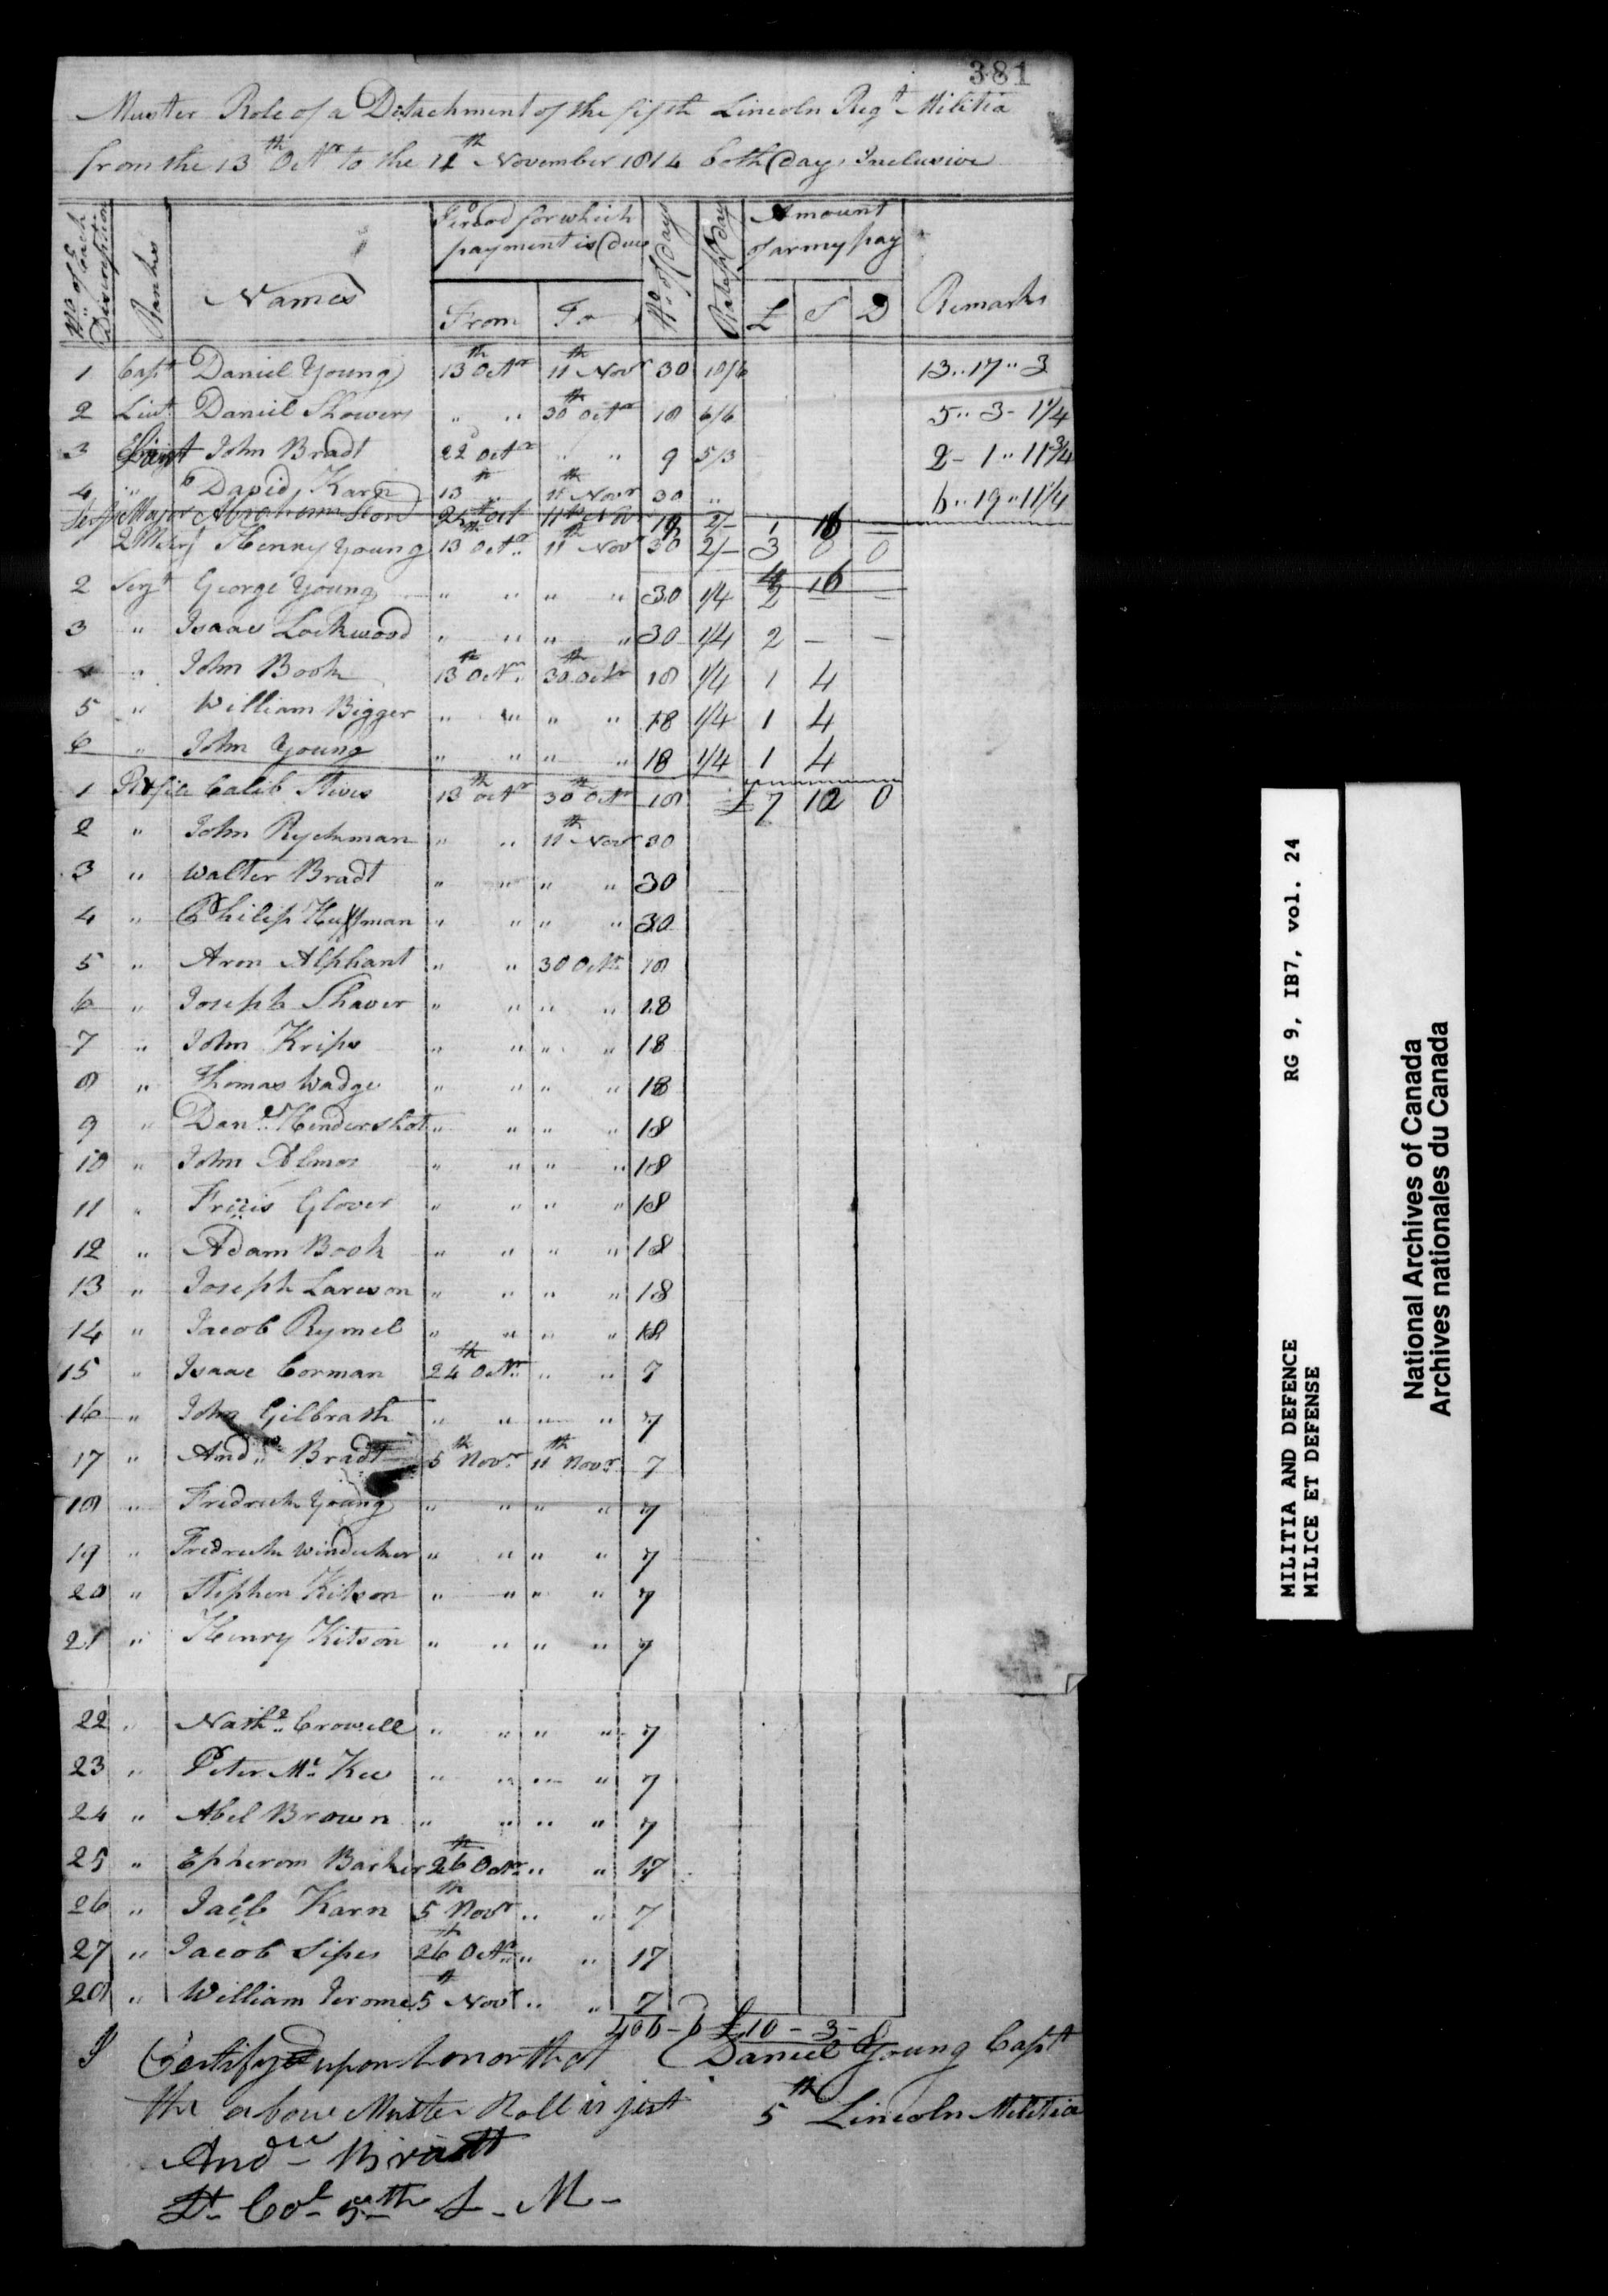 381
Muster Role of a Detachment of the fifth Lincoln Regt Militia
from the 13th Octr to the 11th November 1814 both days Inclusive
No of each Description Ranks Names Period for which payment is due No of days Rate pr day Amount of army pay Remarks
From To £ S D
1 Capt Daniel Young 13th Octr 11th Novr 30 10/6 13..17..3
2 Lieut Daniel Showers " " 30th Octr 18 6/6 5..3-1 1/4
3 John Bradt 22d Octr " " 9 5/3 2-1..11 3/4
4 " David Karn 13th " 11th Novr 30 " 6..19..11 1/4
Serjt Major Abraham 24th Oct 11th Nov 2/- 1 16 —
1 Henry Young 13th Octr 11th Novr 30 2/- 3 0 0
4 16
2 Serjt George Young " " " " 30 1/4 2 — —
3 " Isaac Lockwood " " " " 30 1/4 2 — —
4 " John Book 13th Octr 30th Octr 18 1/4 1 4
5 " William Bigger " " " " 18 1/4 1 4
6 " John Young " " " " 18 1/4 1 4
1 Calib Stives 13th Octr 30th Octr 18 £7 12 0
2 " John Ryckman " " 11th Novr 30
3 " Walter Bradt " " " " 30
4 " Philip Huffman " " " " 30
5 " Aron Alphant " " 30 Octr 18
6 " Joseph Shaver " " " " 18
7 " John Krips " " " " 18
8 " Thomas Wadge " " " " 18
9 " Danl Hendershot " " " " 18
10 " John Almos " " " " 18
11 " Glover " " " " 18
12 " Adam Book " " " " 18
13 " Joseph Larason " " " " 18
14 " Jacob Rymel " " " " 18
15 " Isaac Corman 24th Octr " " 7
16 " John Gilbrath " " " " 7
17 " Andw Bradt 5th Novr 11th Novr 7
18 " Fredrick Young " " " " 7
19 " Fredrick Windecker " " " " 7
20 " Stephen Kitson " " " " 7
21 " Henry Kitson " " " " 7
22 " Nathl Crowell " " " " 7
23 " Peter Mc Kee " " " " 7
24 " Abel Brown " " " " 7
25 " Epherom Barker 26th Octr " " 17
26 " Jacb Karn 5th Novr " " 7
27 " Jacob Sipes 26th Octr " " 17
28 " William Jerome 5th Novr " " 7
406-6 £10-3-0
I Certify upon honor that Daniel Young Capt
the above Muster Roll is just 5th Lincoln Militia
Andw Bradt
Lt Col 5th L-M-
MILITIA AND DEFENCE RG 9, IB7, vol. 24
MILICE ET DEFENSE
National Archives of Canada
Archives nationales du Canada